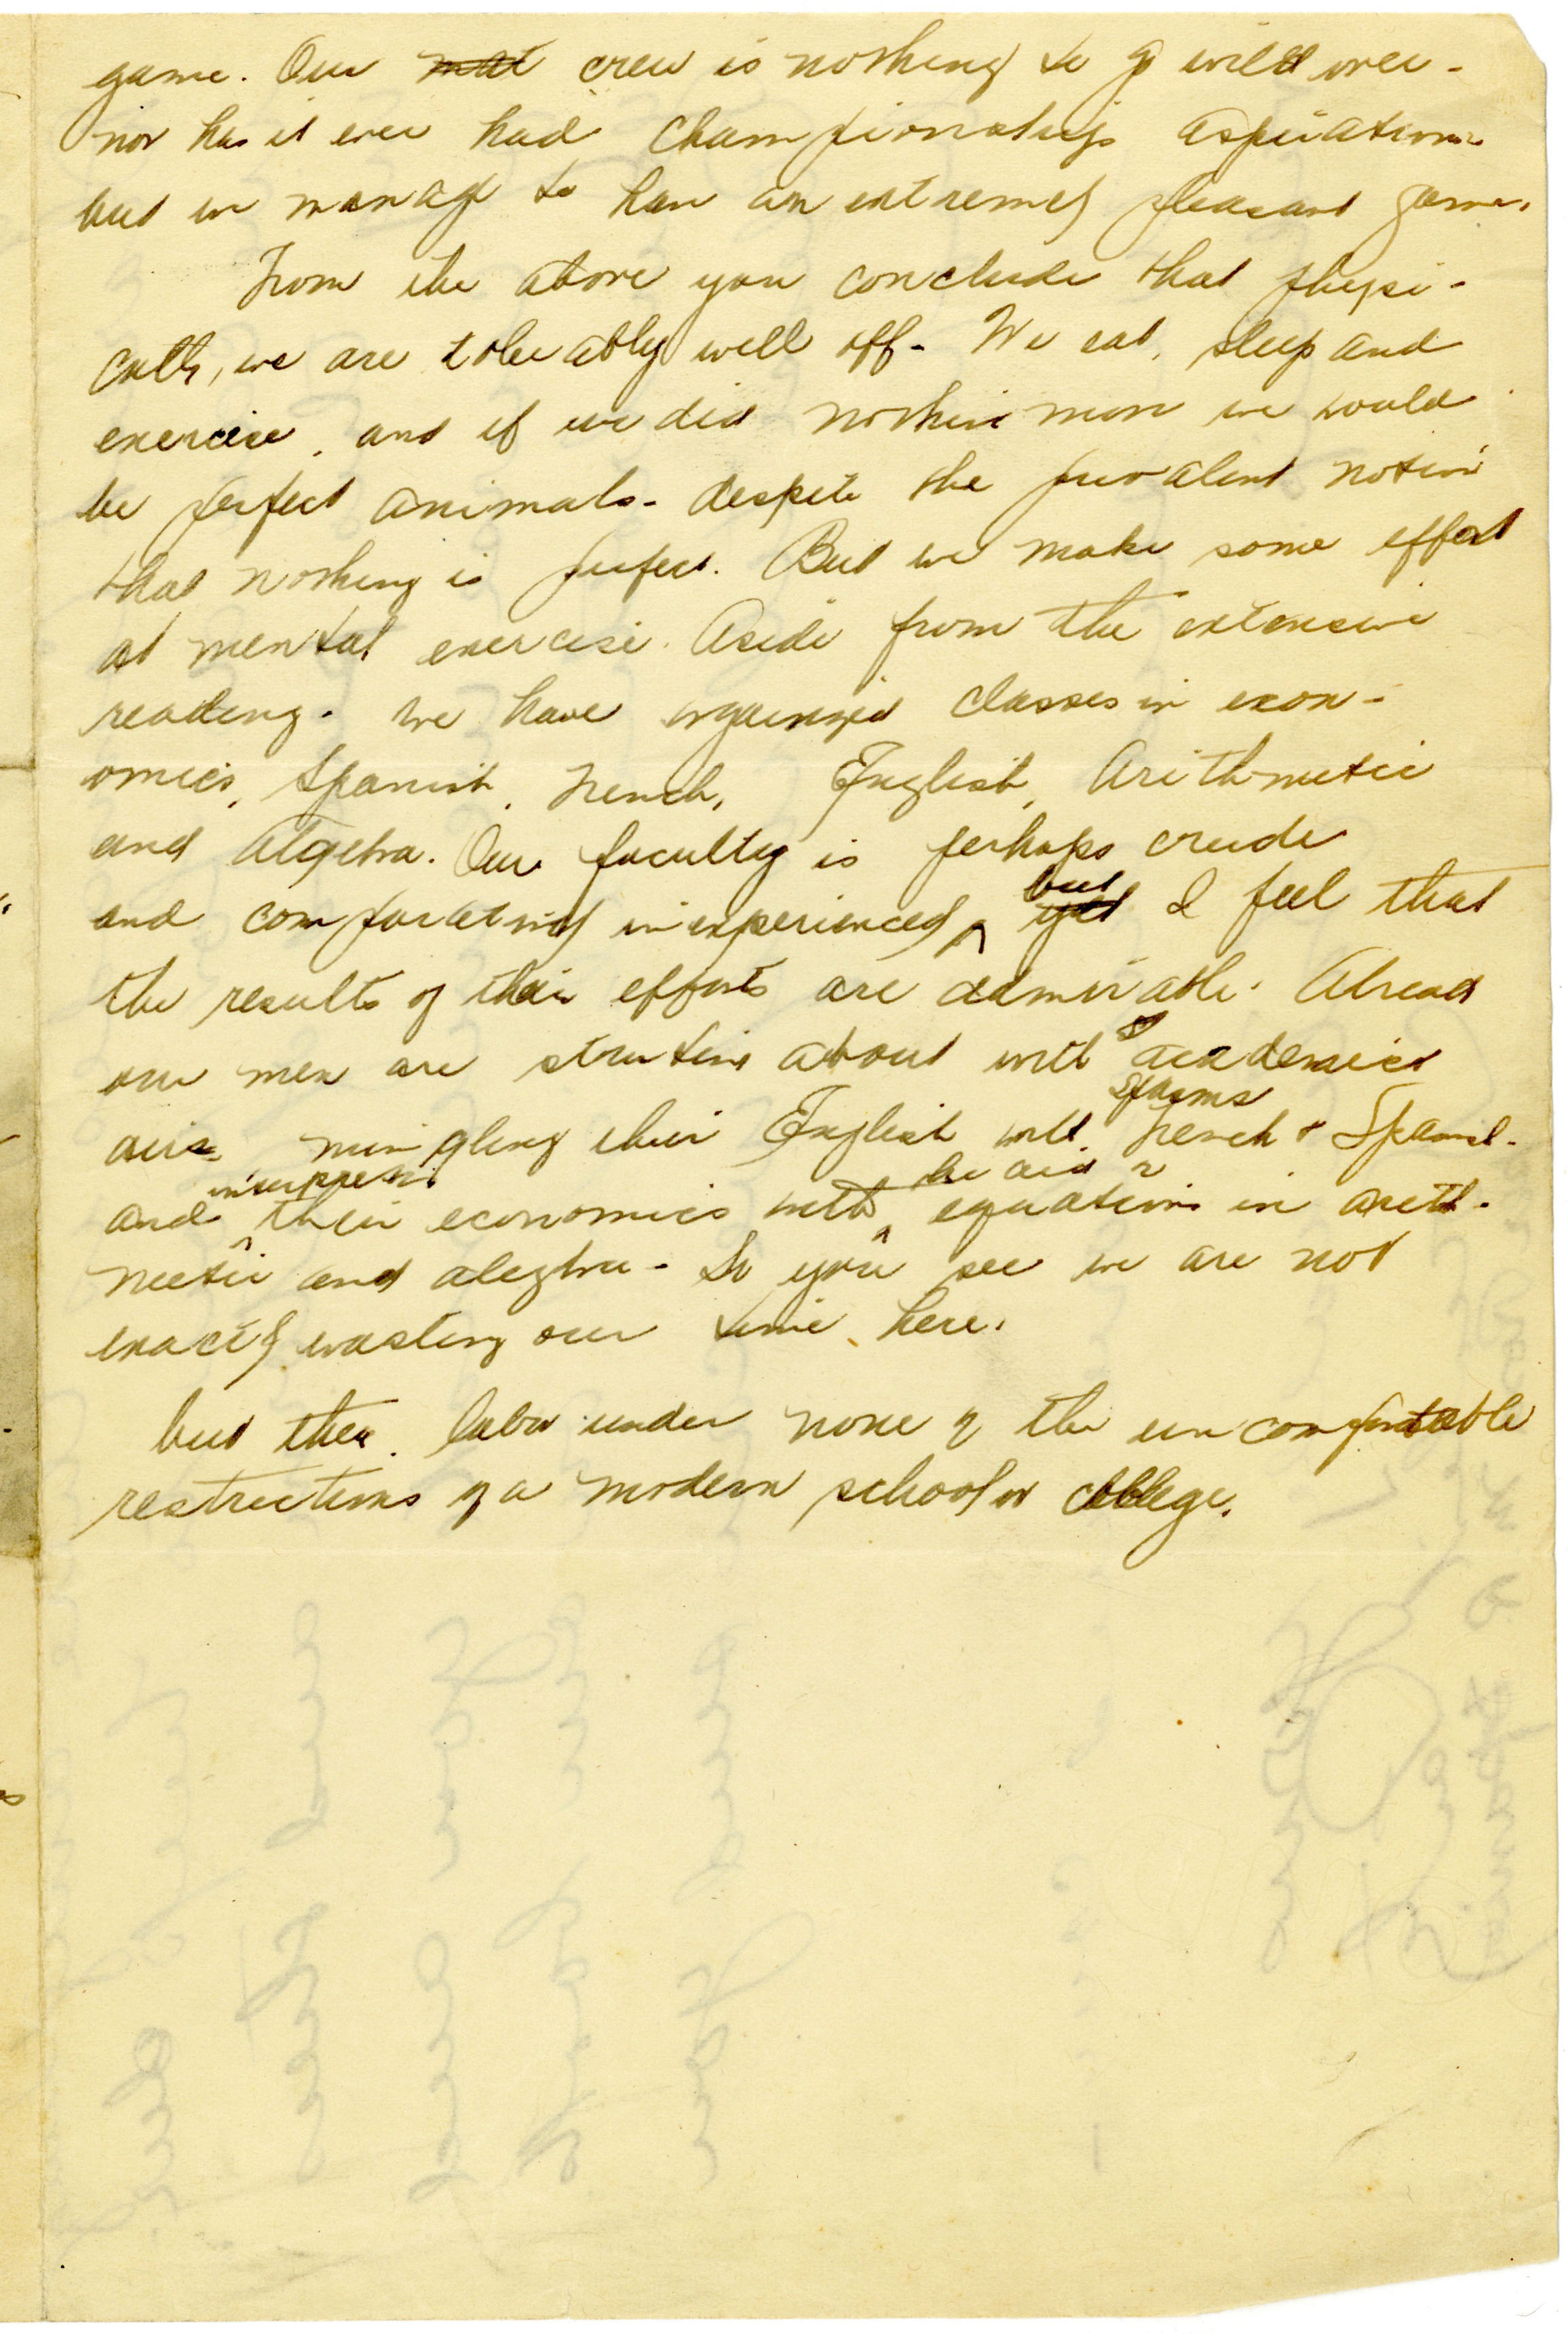 game. Our crew is nothing to go wild over -
nor has it ever had championship aspirations
but we manage to have an extremely pleasant game.
From the above you conclude that physi-
cally, we are tolerably well off - We eat, sleep and
exercise, and if we did nothing more we would
be perfect animals - despite the prevalent notion
that nothing is perfect. But we make some effort
at mental exercise. Aside from the extensive
reading - we have organized classes in econ-
omics, Spanish, French, English, Arithmetic
and Algebra. Our faculty is perhaps crude
and comparatively inexperienced, but I feel that
the results of their efforts are admirable. Already
our men are struting about with academic
airs mingling their English with spasms French & Spanish -
and interpreting their economics with the aid of equations in arith-
metic and alegbra - So you see we are not
exactly wasting our time here.
but then labor under none of the uncomfortable
restrictions of a modern school or college.